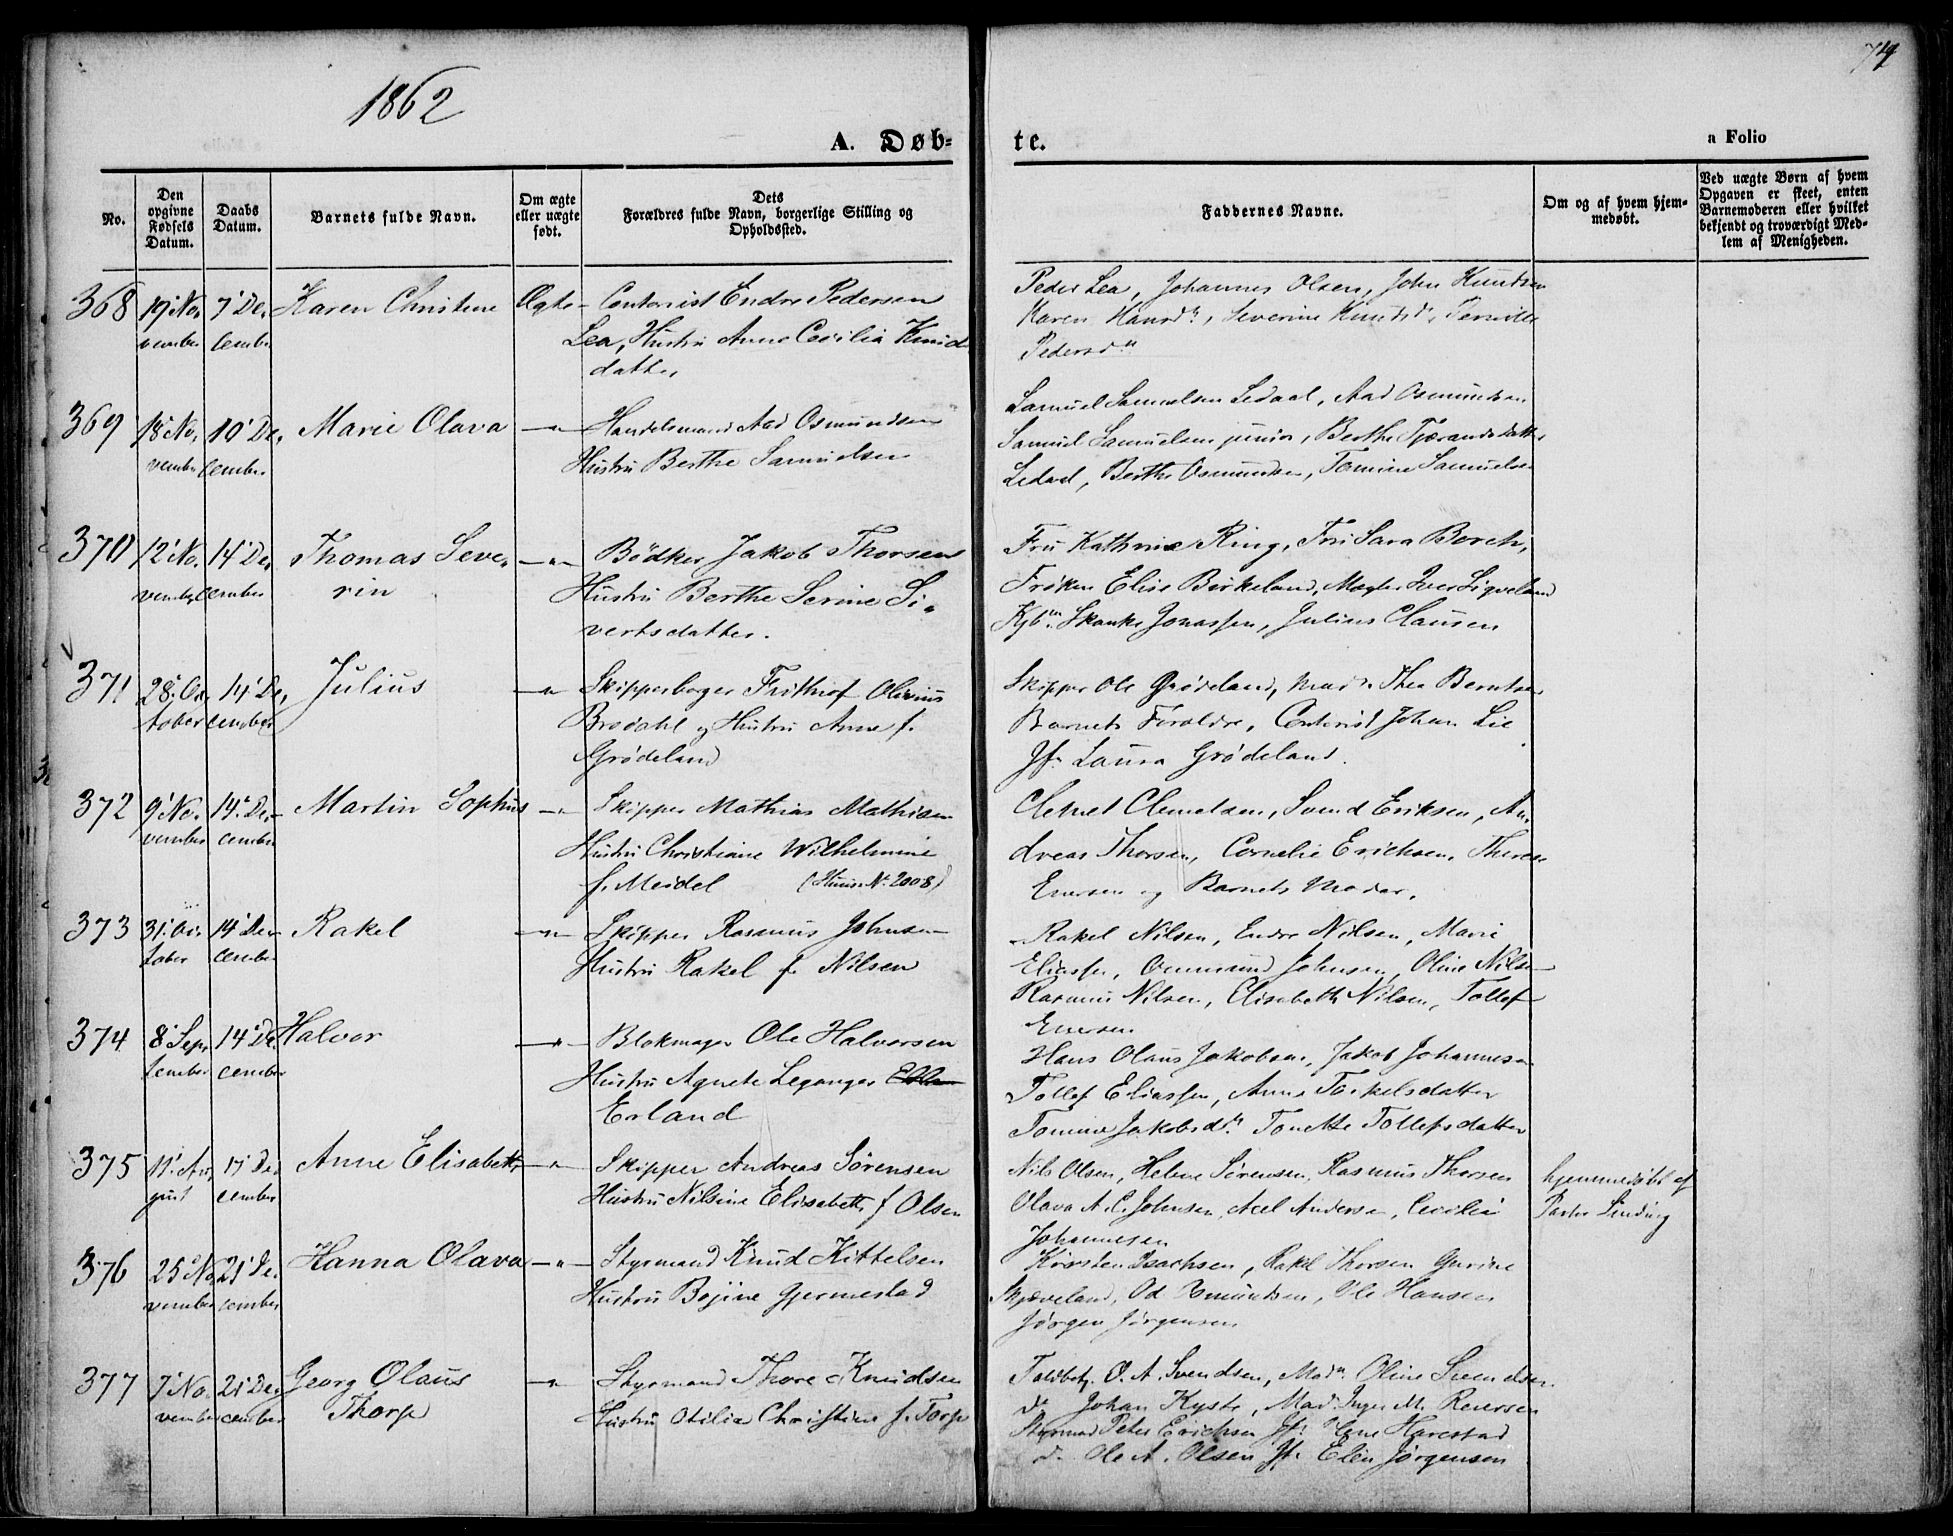 74
1862
A. Døb-
te.
a Folio
No.
Den opgivne Fødsels Datum.
Daabs Datum.
Barnets fulde Navn.
Om ægte eller uægte født.
Dets Forældres fulde Navn, borgerlige Stilling og Opholdssted.
Faddernes Navne.
Om og af hvem hjemmedøbt.
Ved uægte Børn af hvem Opgaven er skeet, enten Barnemoderen eller hvilket bekjendt og troværdigt Medlem af Menigheden.
368 19' No, 7' De, Karen Christine Ægte - Contorist Endre Pedersen
vember cember Lea, Hustru Anne Cecilia Knud
datter
Peder Lea, Johannes Olsen, John Knudsen
Karen Hansdr, Severine Knudsd., Pernille
Pedersdr
369 18' No, 10' De, Marie Olava -"- Handelsmand Aad Osmundsen
vember cember Hustru Berthe Samuelsen
Samuel Samuelsen Ledaal, Aad Osmundsen
Samuel Samuelsen junior, Berthe Tjærandsdatter
Ledaal, Berthe Osmundsen, Tomine Samuelsen
370 12' No. 14' De, Thomas Seve- -"- Bødker Jakob Thorsen
vember cember rin Hustru Berthe Serine Si-
vertsdatter.
Fru Kathrine Ring, Fru Sara Borch,
Frøken Elise Birkeland, Iver Sigveland
Kjbm. Skanke Jonassen, Julius Clausen
371 28' Oc, 14' De, Julius -"- Skipperborger Frithiof Olivius
tober cember Brodahl og Hustru Anne f.
Grødeland
Skipper Ole Grødeland, Mad. Thea Berntsen
Barnets Forældre, Contorist Johan Lie
Jf. Laura Grødeland.
372 9' No. 14' De- Martin Sophus -"- Skipper Mathias Mathisen
vember cember Hustru Christiane Wilhelmine
f. Meidel (Huus No 2008)
Clemet Clemetsen, Svend Eriksen, An-
dreas Thorsen, Cornelie Erichsen, Therese
Enersen og Barnets Moder.
373 31' Oc. 14' De- Rakel -"- Skipper Rasmus Johnsen
tober cember Hustru Rakel f. Nilsen
Rakel Nilsen, Endre Nilsen, Marie
Eliassen, Ommund Johnsen, Oline Nilsen
Rasmus Nilsen, Elisabeth Nilsen, Tollef
Enersen
374 8' Sep, 14' De. Halvor -"- Blokmager Ole Halvorsen
tember cember Hustru Agnete Leganger
Erland
Hans Olaus Jakobsen, Jakob Johannesen
Tollef Eliassen, Anna Torkelsdatter
Tomine Jakobsdr. Tonette Tollefsdatter
375 11' Au, 17' De. Anne Elisabeth -"- Skipper Andreas Sørensen
gust cember Hustru Nilsine Elisabeth f Olsen
Nils Olsen, Helene Sørensen, Rasmus Thorsen
Olava A. C. Johnsen, Axel Andersen, Cecilie
Johannesen
hjemmedøbt af
Pastor Sinding
376 25' No 21' De. Hanna Olava -"- Styrmand Knud Kittelsen
vember cember Hustru Bojine Gjermestad
Karsten Isachsen, Rakel Thorsen Gurine
Skjæveland, Od Osmundsen, Ole Hansen
Jørgen Jørgensen
377 7' No. 21' De. Georg Olaus -"- Styrmand Thore Knudsen
vember cember Thorp Hustru Otilia Christine f. Torp
Toldbetj. O. A. Svendsen, Madm Oline Svendsen
do Johan Kyste, Mad. Inger M. Reiersen
Styrmand Peter Erichsen Jfr. Harestad
d. Ole A. Olsen Jf. Elen Jørgensen